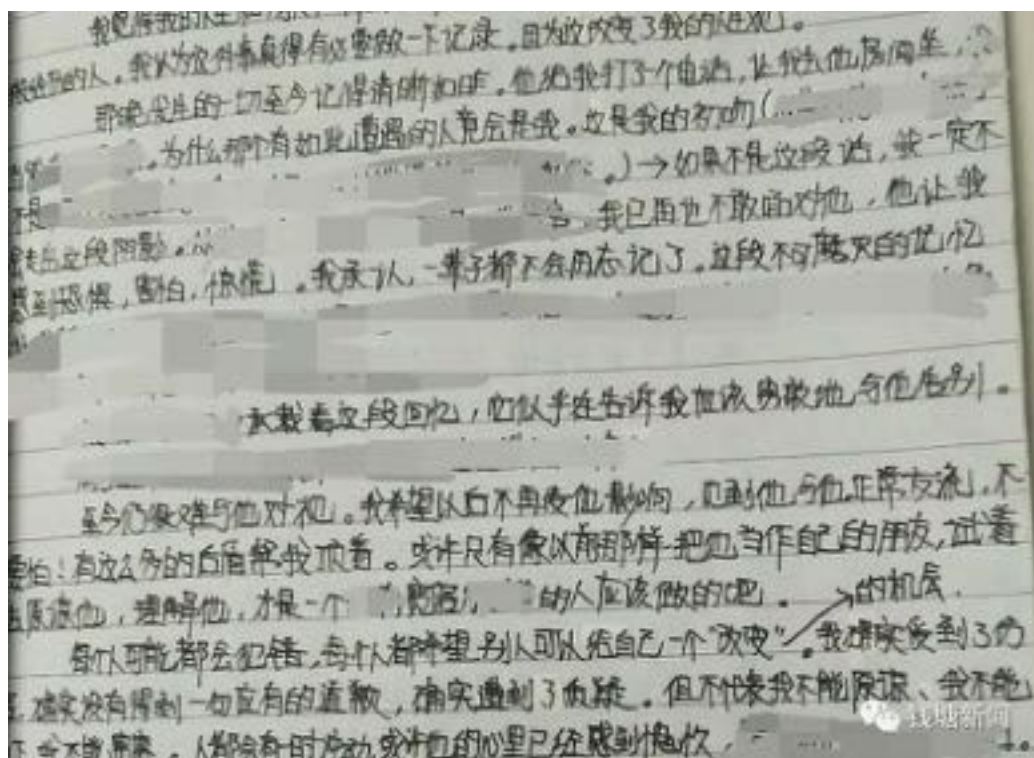 我觉得我的人生
的人。我认为这件事真得有必要做一下记录。因为这改变了我的人生观。
那晚发生的一切至今记得清晰如昨。他给我打了个电话，让我去他房间坐，
。为什么那个有如此遭遇的人竟会是我。这是我的初吻(
。)→如果不是这段话，我一定不
走出这段阴影。 我已再也不敢面对他，他让我
感到恐惧，害怕，惊慌。我承认，一辈子都不会用忘记了。这段不可磨灭的记忆
承载着这段回忆，它似乎在告诉我应该勇敢地与他告别。
至今仍很难与他对视。我希望以后不再受他影响，见到他与他正常交流，不
害怕！有这么多的后盾帮我顶着。或许只有像以前那样把他当作自己的朋友，试着
去原谅他，理解他，才是一个 宽容 的人应该做的吧。 的机会.
每个人可能都会犯错，每个人都希望别人可以给自己一个“改变”。我确实受到了伤
害，确实没有得到一句应有的道歉，确实遭到了质疑。但不代表我不能原谅、我不能
人都会有一时冲动，或许他的心里已经感到愧疚，
钱塘新闻